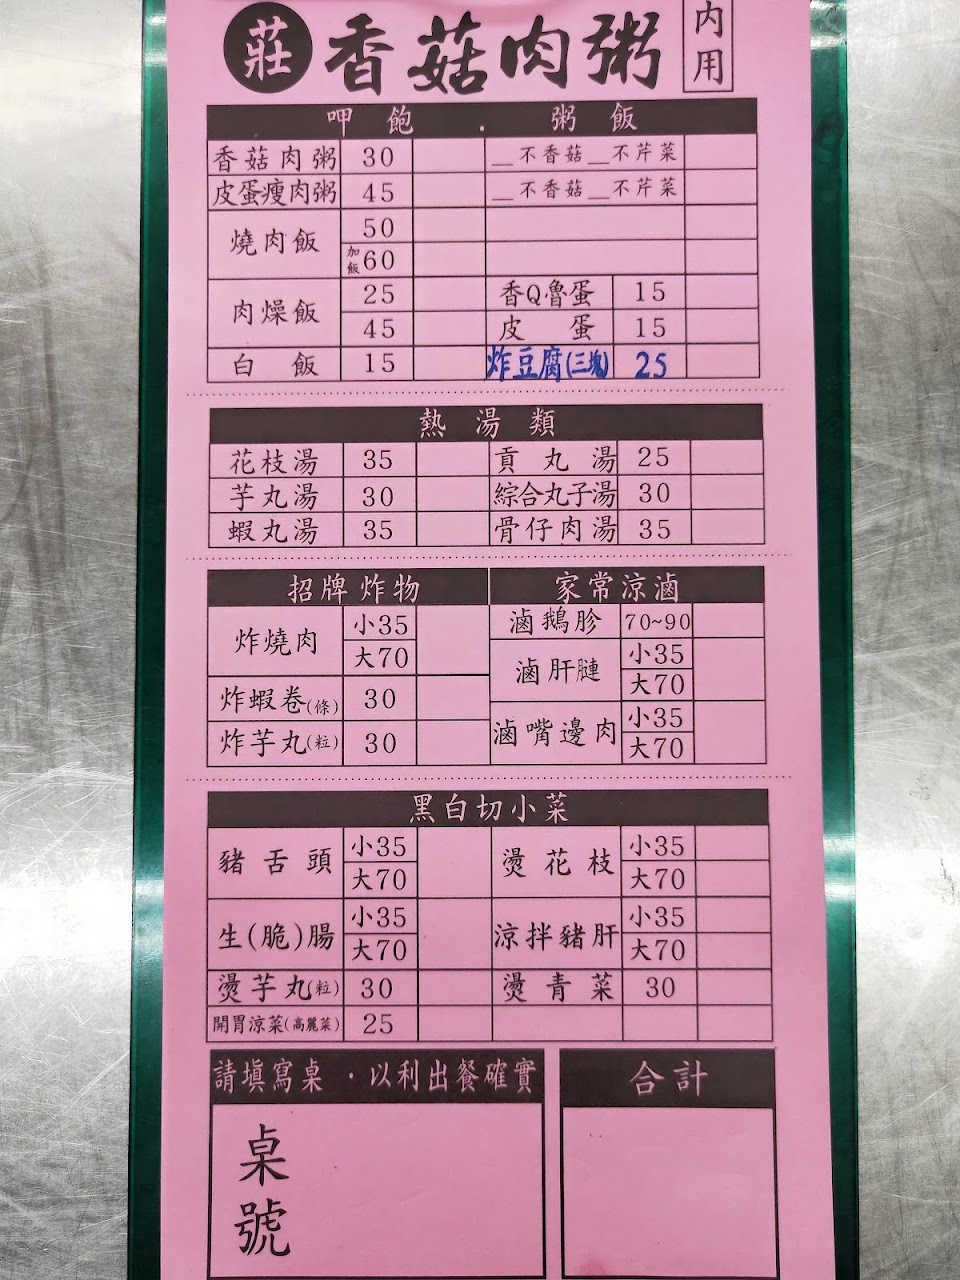 莊 香菇肉粥 內用
呷飽．粥飯
香菇肉粥 30 __不香菇__不芹菜
皮蛋瘦肉粥 45 __不香菇__不芹菜
燒肉飯 50
加飯60
肉燥飯 25 香Q魯蛋 15
45 皮蛋 15
白飯 15 炸豆腐(三塊) 25
熱湯類
花枝湯 35 貢丸湯 25
芋丸湯 30 綜合丸子湯 30
蝦丸湯 35 骨仔肉湯 35
招牌炸物 家常涼滷
炸燒肉 小35 滷鵝胗 70~90
大70 滷肝膢 小35
大70
炸蝦卷(條) 30
滷嘴邊肉 小35
炸芋丸(粒) 30 大70
黑白切小菜
豬舌頭 小35 燙花枝 小35
大70 大70
生(脆)腸 小35 涼拌豬肝 小35
大70 大70
燙芋丸(粒) 30 燙青菜 30
開胃涼菜(高麗菜) 25
請填寫桌．以利出餐確實 合計
桌
號